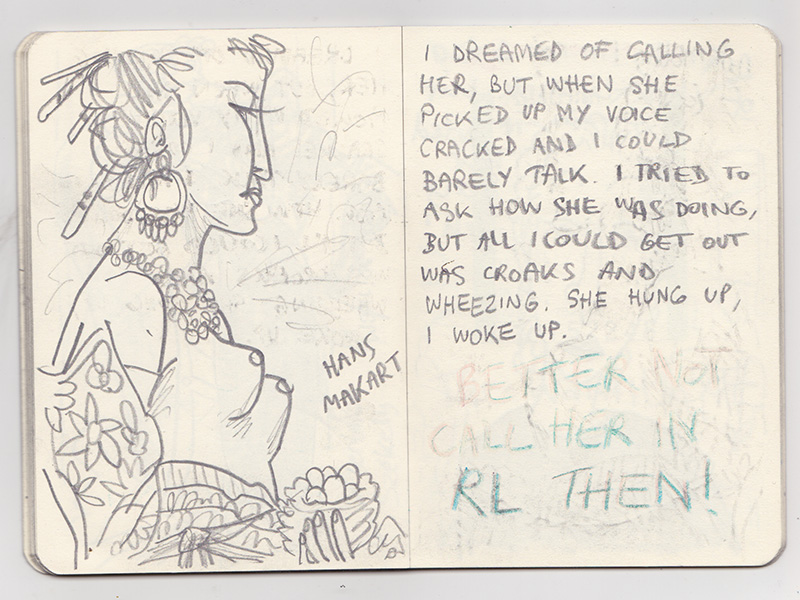 HANS
MAKART
I DREAMED OF CALLING
HER, BUT WHEN SHE
PICKED UP MY VOICE
CRACKED AND I COULD
BARELY TALK. I TRIED TO
ASK HOW SHE WAS DOING,
BUT ALL I COULD GET OUT
WAS CROAKS AND
WHEEZING. SHE HUNG UP,
I WOKE UP.
BETTER NOT
CALL HER IN
RL THEN!